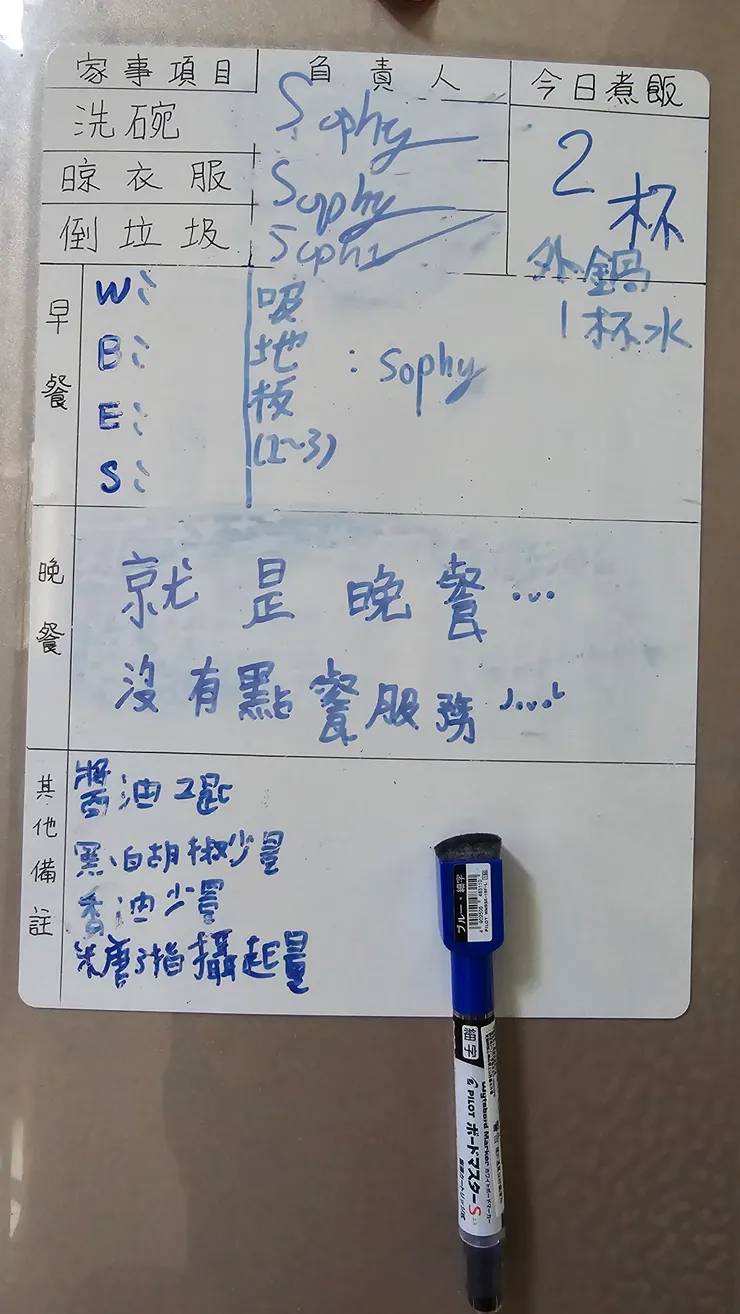 家事項目 負責人 今日煮飯
洗碗 Sophy
晾衣服 Sophy
倒垃圾 Sophy
2杯
外鍋
1杯水
早餐
W:
B:
E:
S:
吸地板(2~3) : Sophy
晚餐
就是晚餐...
沒有點餐服務...
其他備註
醬油2匙
黑白胡椒少量
香油少量
米唐3指攝起量
ブルー・細字
細字
PILOT ボードマスターS
Whiteboard Marker